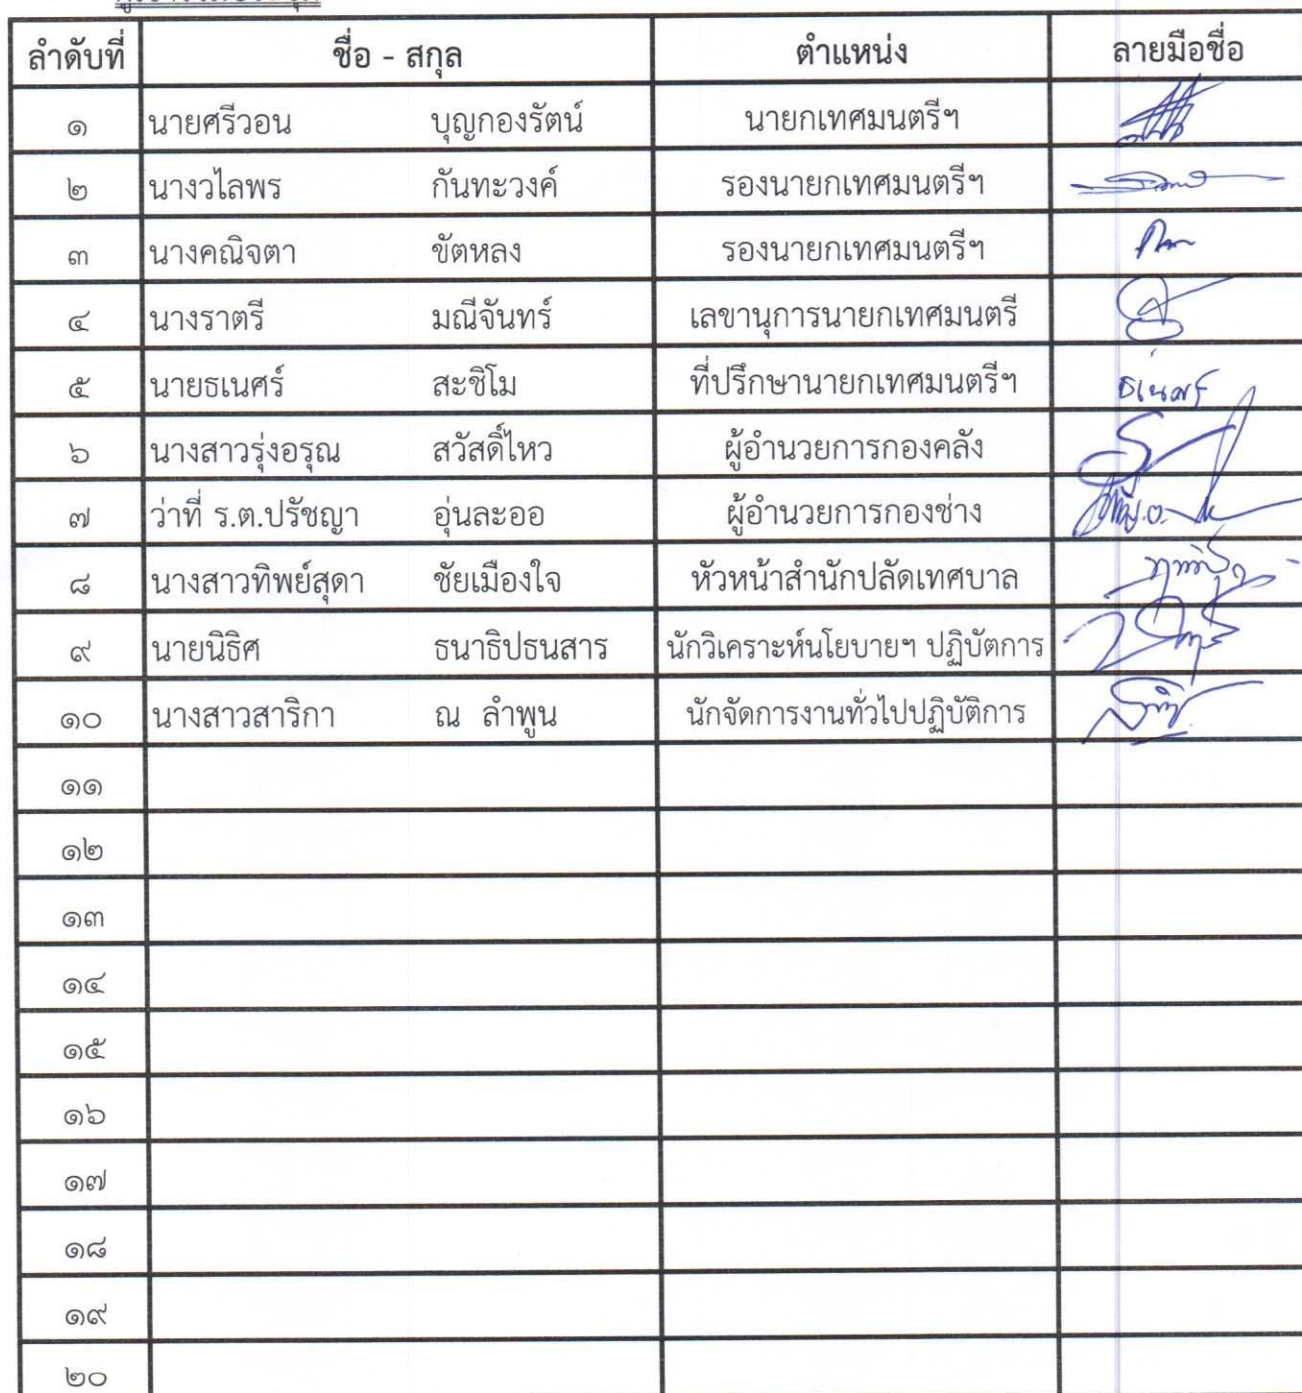 ลำดับที่ ชื่อ - สกุล ตำแหน่ง ลายมือชื่อ
๑ นายศรีวอน บุญกองรัตน์ นายกเทศมนตรีฯ
๒ นางวไลพร กันทะวงค์ รองนายกเทศมนตรีฯ
๓ นางคณิจตา ขัตหลง รองนายกเทศมนตรีฯ
๔ นางราตรี มณีจันทร์ เลขานุการนายกเทศมนตรี
๕ นายธเนศร์ สะชิโม ที่ปรึกษานายกเทศมนตรีฯ ธเนศร์
๖ นางสาวรุ่งอรุณ สวัสดิ์ไหว ผู้อำนวยการกองคลัง
๗ ว่าที่ ร.ต.ปรัชญา อุ่นละออ ผู้อำนวยการกองช่าง
๘ นางสาวทิพย์สุดา ชัยเมืองใจ หัวหน้าสำนักปลัดเทศบาล
๙ นายนิธิศ ธนาธิปธนสาร นักวิเคราะห์นโยบายฯ ปฏิบัตการ
๑๐ นางสาวสาริกา ณ ลำพูน นักจัดการงานทั่วไปปฏิบัติการ
๑๑
๑๒
๑๓
๑๔
๑๕
๑๖
๑๗
๑๘
๑๙
๒๐